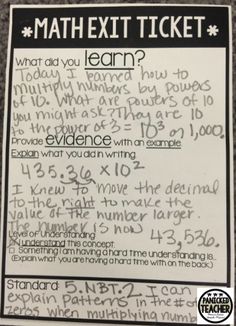 *MATH EXIT TICKET*
What did you learn?
Today I learned how to
multiply numbers by powers
of 10. What are powers of 10
you might ask? They are 10
to the power of 3 = 10³ or 1,000.
Provide evidence with an example.
Explain what you did in writing.
435.36 × 10²
I knew to move the decimal
to the right to make the
value of the number larger.
The number is now 43,536.
Level of Understanding
I understand this concept.
Something I am having a hard time understanding is...
(Explain what you are having a hard time with on the back.)
Standard: 5.NBT.2 I can
explain patterns in the # of
zeros when multiplying number
PANICKED
TEACHER